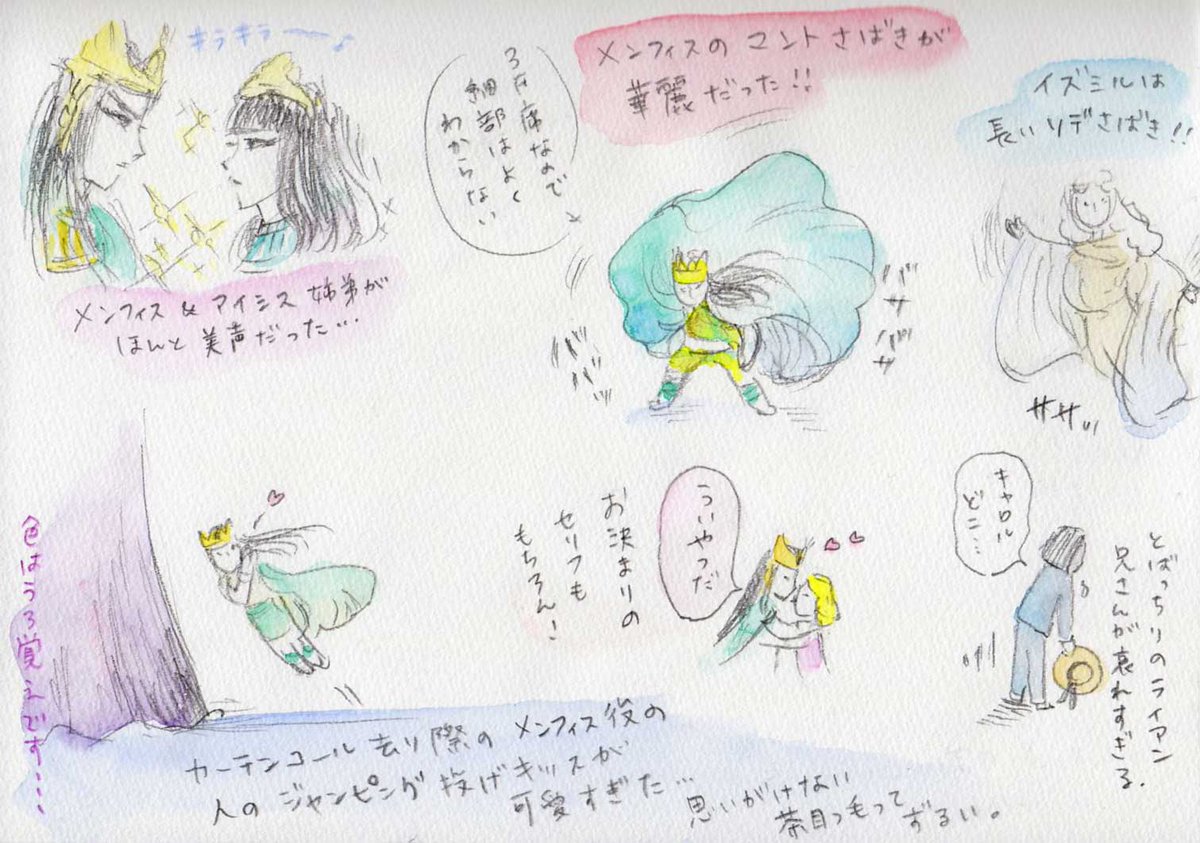 キラキラ〜♪
メンフィス & アイシス 姉弟が
ほんと 美声だった…
3F席なので
細部はよく
わからない
メンフィスの マントさばきが
華麗だった!!
バババババ
バサバサ
イズミルは
長いソデさばき!!
ササッ
お決まりの
セリフも
もちろん!
ういやつだ
キャロル
どこ…
とばっちりのライアン
兄さんが哀れすぎる.
色はうろ覚えです....
カーテンコール去り際の メンフィス役の
人の ジャンピング投げキッスが
可愛すぎた…
思いがけない
茶目っ気って
ずるい。